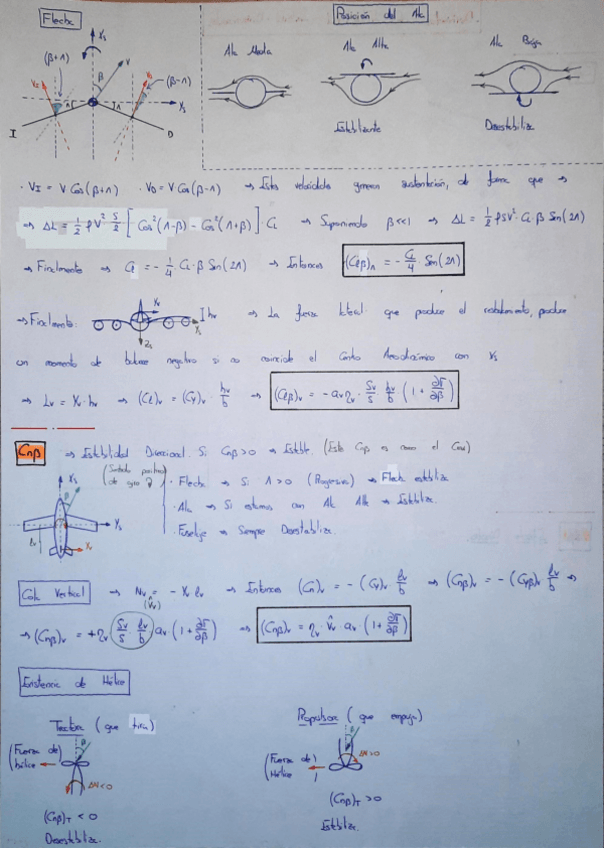 Flecha
Posición del Ala
Ala Media
Ala Alta
Ala Baja
Xs
(β+Λ)
β
V
(β-Λ)
Ys
Λ
I
D
Estabilizante
Desestabiliza
· V_I = V Cos(β+Λ) · V_D = V Cos(β-Λ) → Estas velocidades generan sustentación, de forma que →
→ ΔL = 1/2 ρV² S/2 [Cos²(Λ-β) - Cos²(Λ+β)] · C_L → Suponiendo β<<1 → ΔL = 1/2 ρSV² · C_L · β Sen(2Λ)
→ Finalmente → Cl = - 1/4 C_L · β Sen(2Λ) → Entonces (Clβ)_Λ = - C_L/4 Sen(2Λ)
→ Finalmente: Yv I hv → La fuerza lateral que produce el resbalamiento, produce
Ys
Zs
un momento de balance negativo si no coincide el Centro Aerodinámico con Xs
→ Lv = Yv · hv → (Cl)v = (Cy)v · hv/b → (Clβ)v = - av ηv · Sv/S hv/b (1 + ∂σ/∂β)
Cnβ → Estabilidad Direccional. Si Cnβ>0 → Estable. (Este Cnβ es como el Cmα)
Xs
(Sentido positivo de giro)
· Flecha → Si Λ>0 (Progresiva) → Flecha estabiliza
· Ala → Si estamos con Ala Alta → Estabiliza.
· Fuselaje → Siempre Desestabiliza.
β
Ys
lv
Yv
Cola Vertical → Nv = - Yv lv → Entonces (Cn)v = - (Cy)v lv/b → (Cnβ)v = - (Cyβ)v lv/b →
(V̂v)
→ (Cnβ)v = +ηv (Sv/S lv/b) av (1 + ∂σ/∂β) → (Cnβ)v = ηv · V̂v · av (1 + ∂σ/∂β)
Existencia de Hélice
Tractora (que tira)
Propulsora (que empuja)
β
(Fuerza de hélice)
ΔN<0
β
(Fuerza de Hélice)
ΔN>0
(Cnβ)_T < 0
Desestabiliza.
(Cnβ)_T > 0
Estabiliza.